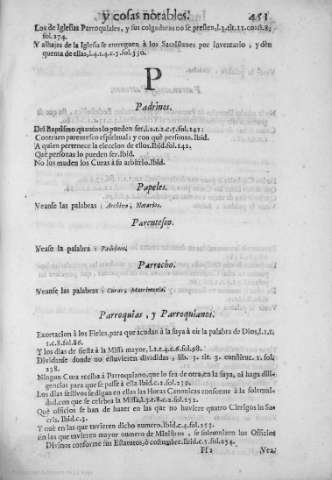 y cosas notables. 451
Los de Iglesias Parroquiales, y sus colgaduras no se presten, l.3. tit. 11. const. 8.
fol. 274.
Y alhajas de la Iglesia se entreguen à los Sacristanes por inventario, y den
quenta de ellas, l.4. t.4. c.7. fol. 350.
P
Padrinos.
Del Baptismo quantos lo pueden ser, l.1. t.2. c.5. fol. 141.
Contraen parentesco espiritual: y con què personas. Ibid.
A quien pertenece la eleccion de ellos. Ibid. fol. 142.
Què personas lo pueden ser. Ibid.
No los muden los Curas à su arbitrio. Ibid.
Papeles.
Veanse las palabras: Archivo, Notarios.
Parentesco.
Vease la palabra: Padrinos.
Parrocho.
Veanse las palabras: Curas, Matrimonio.
Parroquias, y Parroquianos.
Exortacion à los Fieles, para que acudan à la suya à oir la palabra de Dios, l.1. t.
1. c.8. fol. 86.
Y los dias de fiesta à la Missa mayor, l.1. t.4. c.6. fol. 98.
Divídanse donde no estuvieren divididas, lib. 3. tit. 3. constituc. 1. fol.
238.
Ningun Cura reciba à Parroquiano, que lo sea de otra, en la suya, ni haga diligencias para que se passe à ella. Ibid. c.2. fol. 250.
Los dias festivos se digan en ellas las Horas Canonicas conforme à la solemnidad, con que se celebra la Missa, l.3. t.8. c.2. fol. 252.
Què officios se han de hacer en las que no huviere quatro Clerigos in Sacris. Ibid. c.3.
Y què en las que tuvieren dicho numero. Ibid. c.4. fol. 253.
Y en las que tuvieren mayor numero de Ministros, se solemnicen los Officios
Divinos conforme sus Estatutos, ò costumbre. Ibid. c.5. fol. 254.